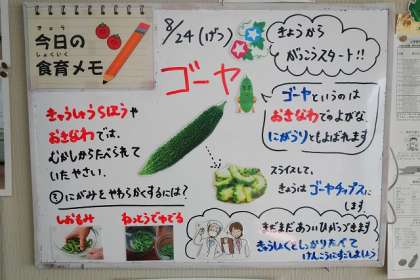 きょう
今日の
しょくいく
食育メモ
8/24(げつ)
きょうから
がっこうスタート!!
ゴーヤ
ゴーヤというのは
おきなわでのよびな。
にがうりともよばれます
きゅうしゅうちほうや
おきなわでは、
むかしからたべられて
いたやさい。
にがみをやわらかくするには?
しおもみ
ねっとうでゆでる
スライスして、
きょうはゴーヤチップスに
します
まだまだあついひがつづきます
きゅうしょくをしっかりたべて
けんこうにすごしましょう